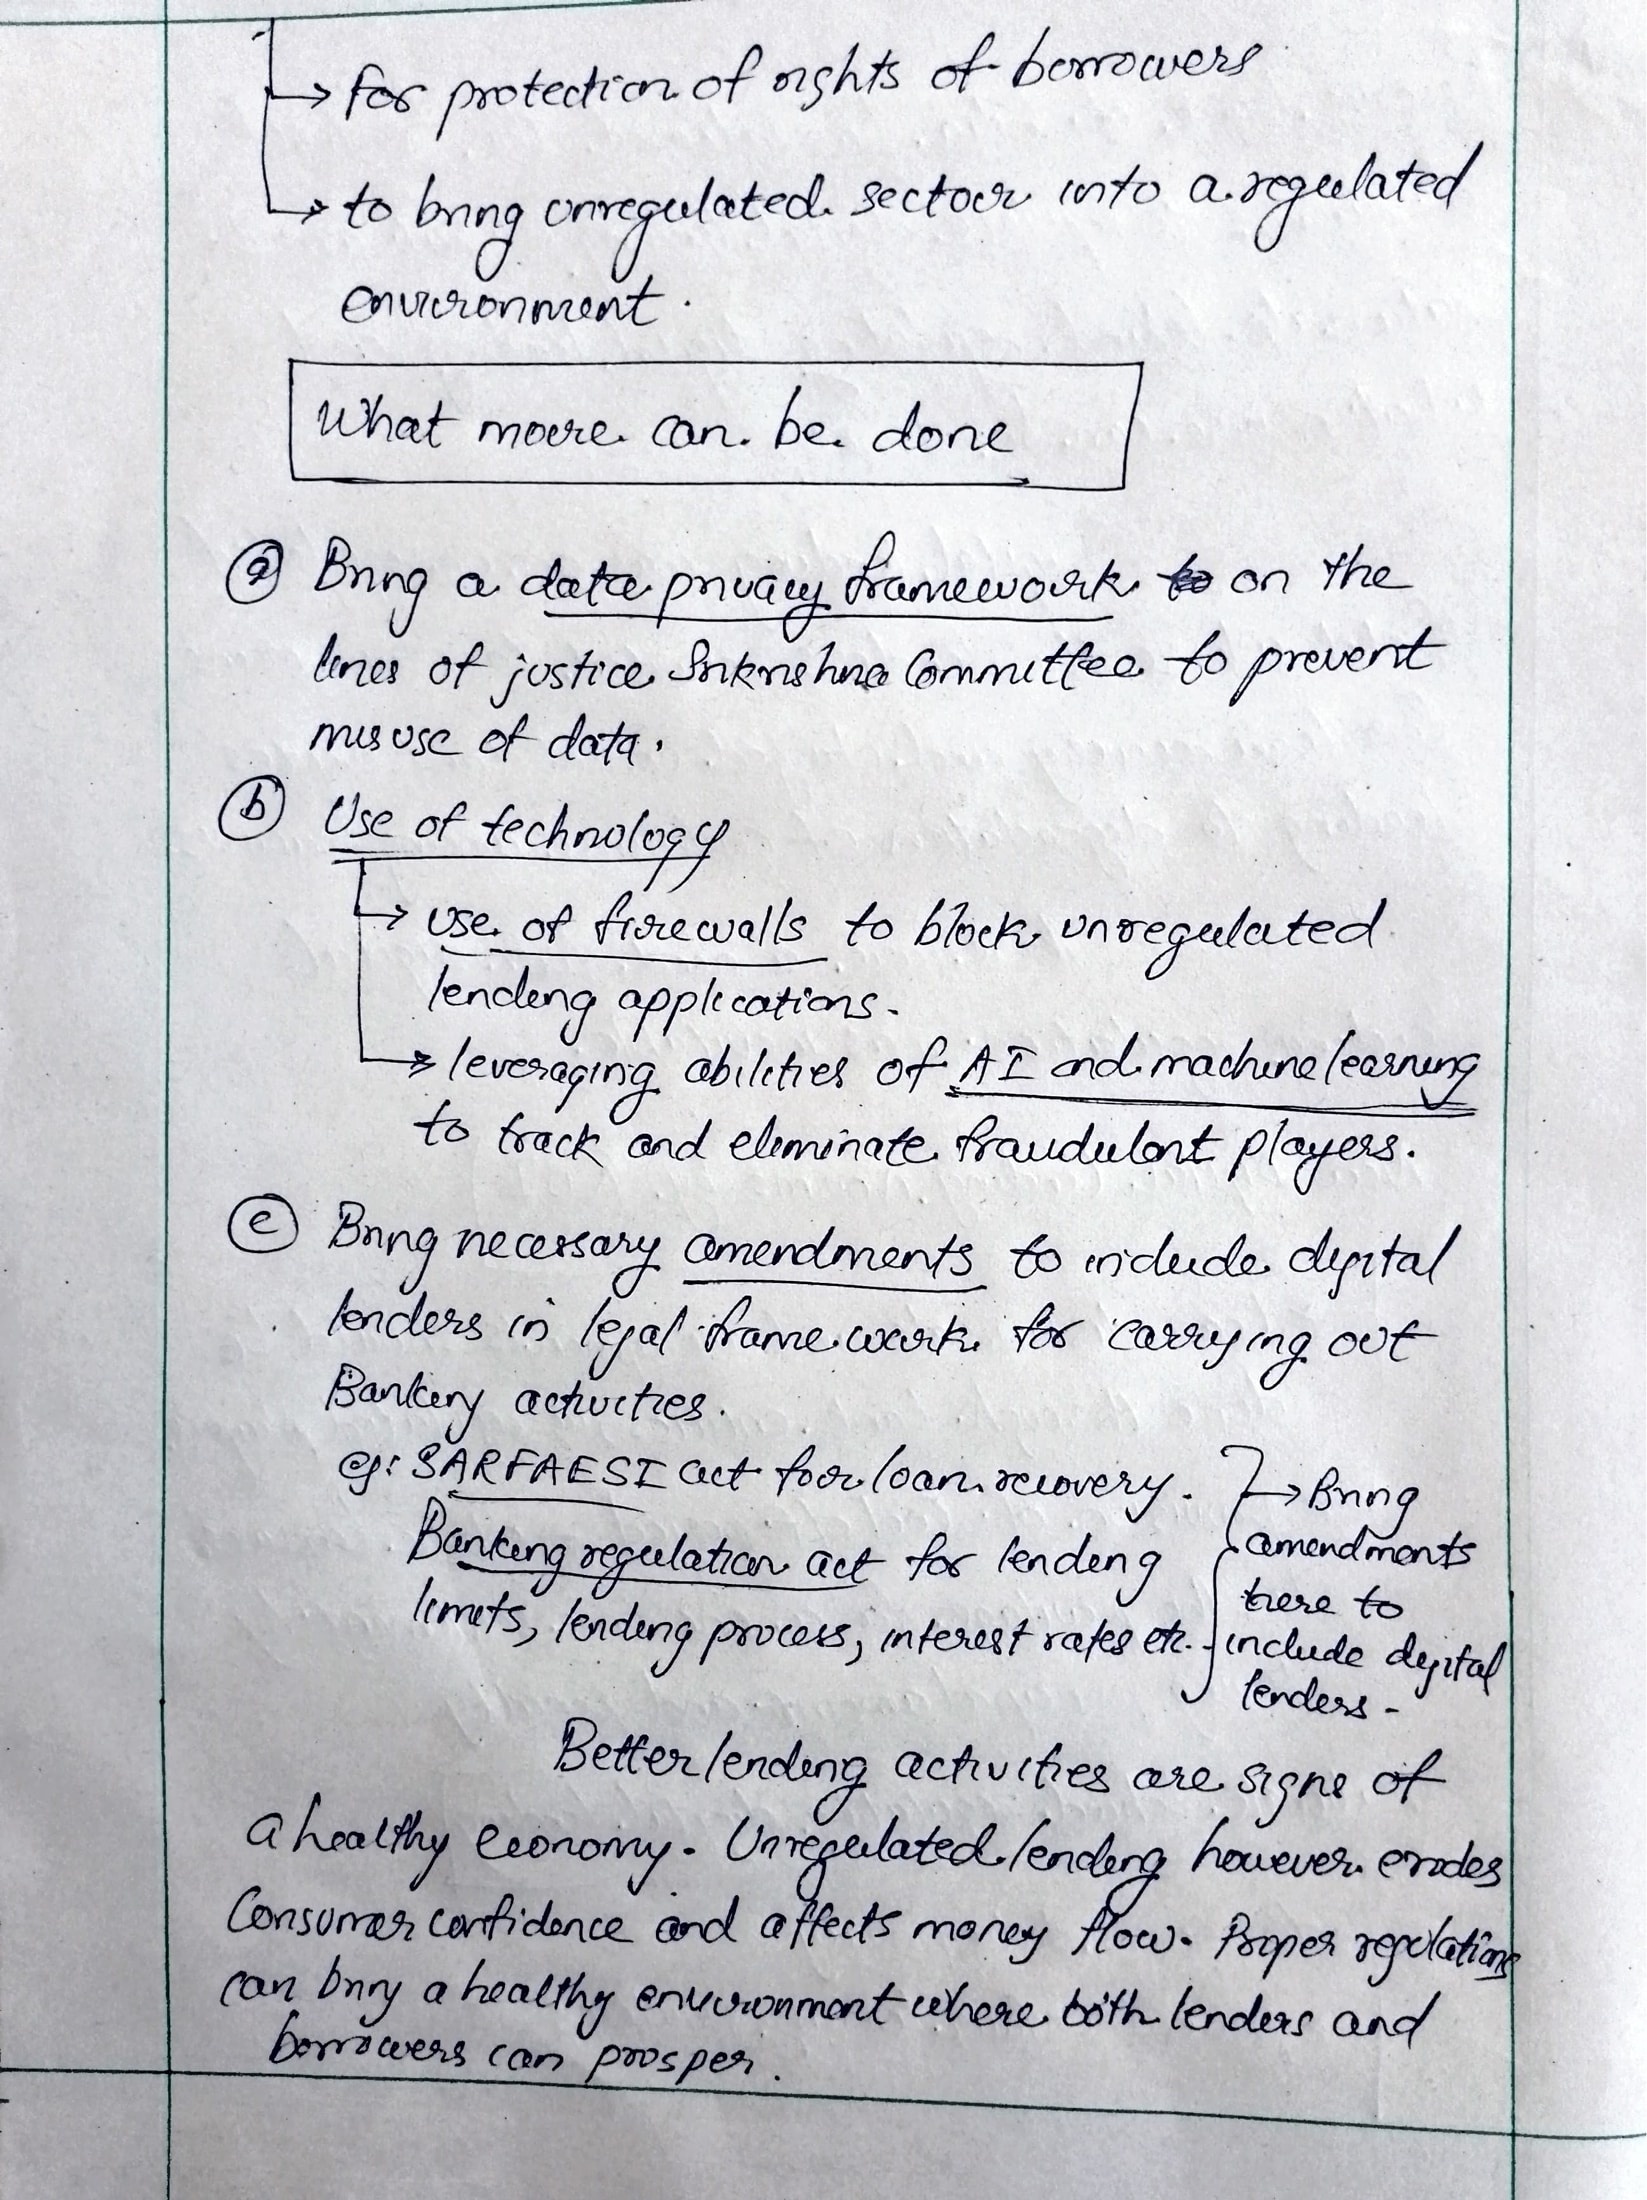 → for protection of rights of borrowers
→ to bring unregulated sector into a regulated
environment.
What more can be done
(a) Bring a data privacy framework on the
lines of justice Srikrishna Committee to prevent
misuse of data.
(b) Use of technology
→ use of firewalls to block unregulated
lending applications.
→ leveraging abilities of AI and machine learning
to track and eliminate fraudulent players.
(c) Bring necessary amendments to include digital
lenders in legal framework for carrying out
Banking activities.
eg: SARFAESI act for loan recovery. → Bring
Banking regulation act for lending amendments
limits, lending process, interest rates etc. here to
include digital
lenders.
Better lending activities are signs of
a healthy economy. Unregulated lending however erodes
Consumer confidence and affects money flow. Proper regulations
can bring a healthy environment where both lenders and
borrowers can prosper.